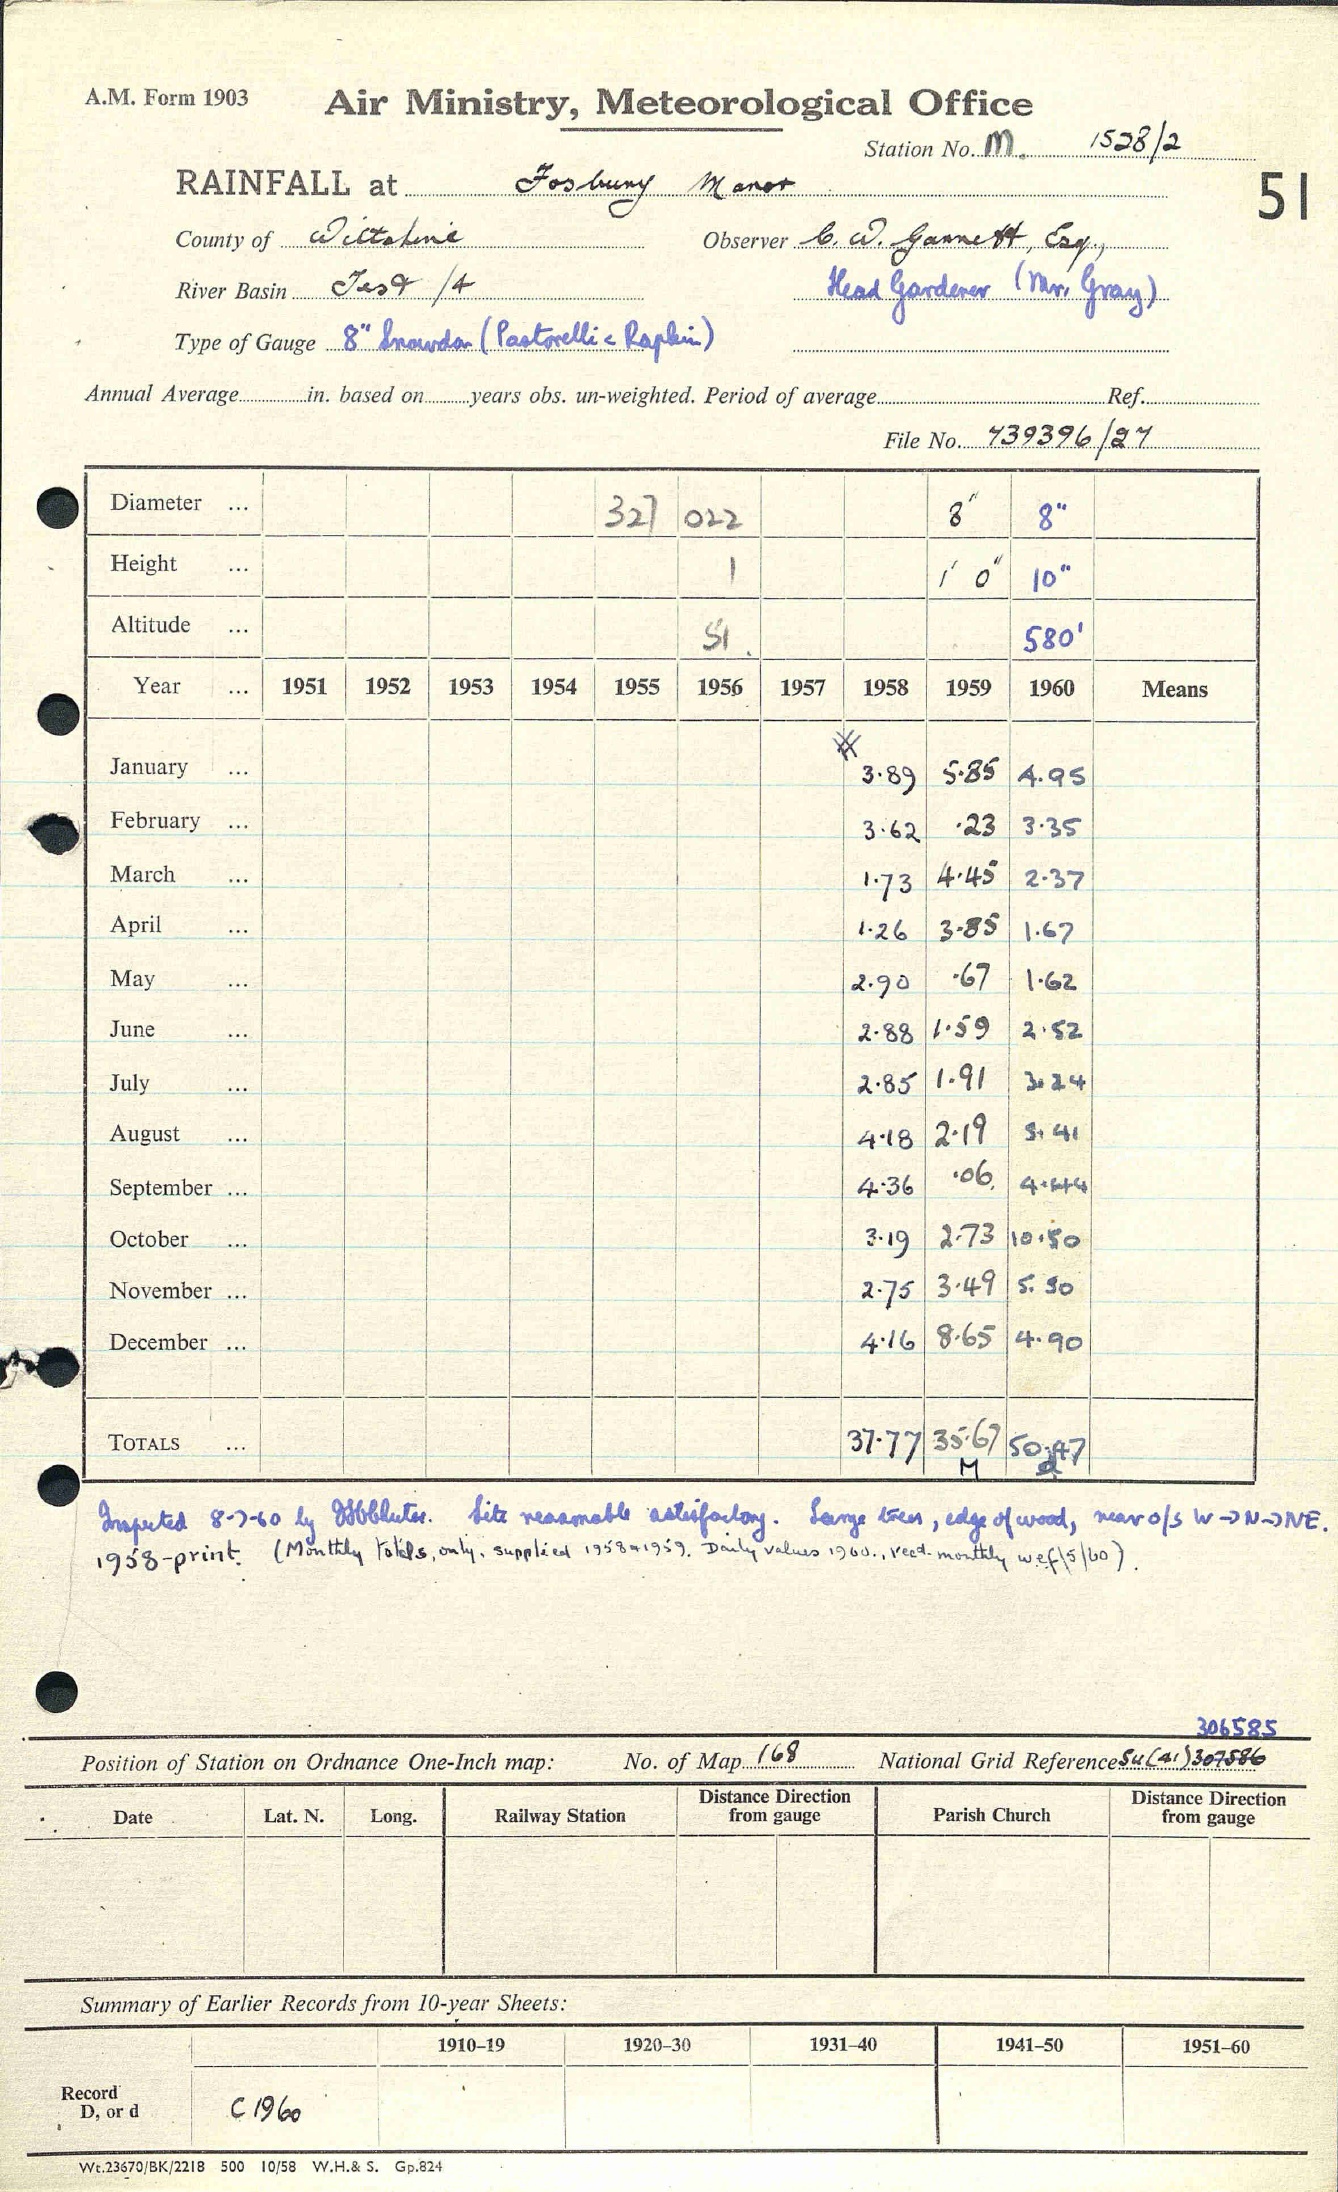 A.M. Form 1903
Air Ministry, Meteorological Office
Station No. M. 1528/2
51
RAINFALL at Fosbury Manor
County of Wiltshire Observer C. W. Garnett, Esq.,
River Basin Test /4 Head Gardener (Mr. Gray)
Type of Gauge 8" Snowdon (Pastorelli & Rapkin)
Annual Average in. based on years obs. un-weighted. Period of average Ref.
File No. 739396/27
Diameter ... 327 022 8" 8"
Height ... 1 1' 0" 10"
Altitude ... 51. 580'
Year ... 1951 1952 1953 1954 1955 1956 1957 1958 1959 1960 Means
January ... 3·89 5·85 4.95
February ... 3·62 ·23 3·35
March ... 1·73 4·45 2·37
April ... 1·26 3·85 1·67
May ... 2·90 ·67 1·62
June ... 2·88 1·59 2·52
July ... 2·85 1·91 3·24
August ... 4·18 2·19 5·41
September ... 4·36 ·06 4·44
October ... 3·19 2·73 10·50
November ... 2·75 3·49 5.50
December ... 4·16 8·65 4·90
TOTALS ... 37·77 35·67 50·47
M
Inspected 8-7-60 by Site reasonable satisfactory. Large trees, edge of wood, near o/s W→N→NE.
1958-print. (Monthly totals, only, supplied 1958 & 1959. Daily values 1960., recd. monthly wef 1/5/60).
306585
Position of Station on Ordnance One-Inch map: No. of Map 168 National Grid Reference SU(41)307586
Date Lat. N. Long. Railway Station Distance Direction from gauge Parish Church Distance Direction from gauge
Summary of Earlier Records from 10-year Sheets:
1910–19 1920–30 1931–40 1941–50 1951–60
Record D, or d C 1960
Wt.23670/BK/2218 500 10/58 W.H.& S. Gp.824